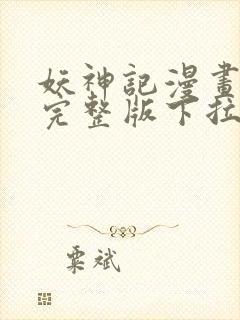 妖神記漫畫
完整版下拉
粟斌